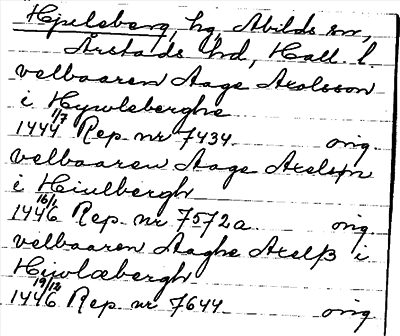 Hjulsberg, hg, Abilds sn,
Årstads hd, Hall. l.
velbaaren Aage Axelsson
i Hywlsberghe
1444 1/7 Rep. nr 7434 orig.
velbaaren Aage Axelssøn
i Hiulbergh
1446 16/1 Rep. nr 7572a orig.
velbaaren Aaghe Axelß i
Hiwlæbergh
1446 19/12 Rep. nr 7644 orig